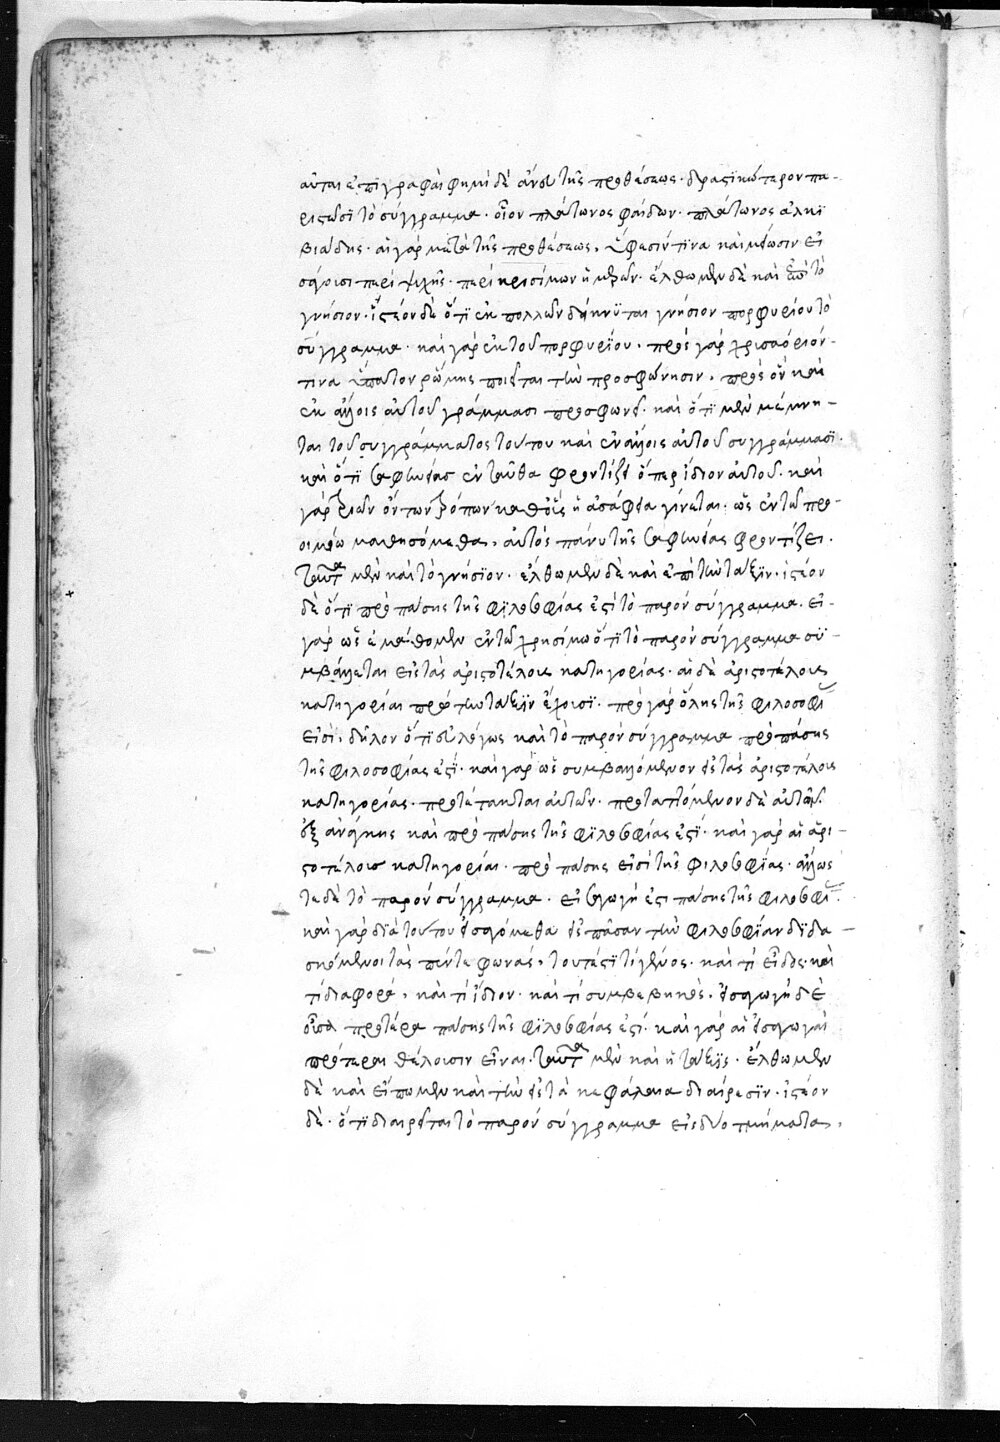 αὗται ἐπιγραφαὶ φημὶ δὲ ἄνευ τῆς προθέσεως· δραστικώτερον πα-
ριστῶσι τὸ σύγγραμμα· οἷον πλάτωνος φαίδων· πλάτωνος ἀλκι
βιάδης· αἱ γὰρ μετὰ τῆς προθέσεως, ὕφεσίν τινα καὶ μείωσιν εἰ
σάγουσι περὶ ψυχῆς· περὶ κρισίμων ἡμερῶν· ἔλθωμεν δὲ καὶ ἐπὶ τὸ
γνήσιον· ἰστέον δὲ ὅτι ἐκ πολλῶν δείκνυται γνήσιον πορφυρίου τὸ
σύγγραμμα· καὶ γὰρ ἐκ τοῦ πορφυρίου· πρὸς γὰρ χρισαόριόν
τινα ὕπατον ῥώμης ποιεῖται τὴν προσφώνησιν, πρὸς ὃν καὶ
ἐν ἄλλοις αὐτοῦ γράμμασι προσφωνεῖ· καὶ ὅτι μὲν μέμνη-
ται τοῦ συγγράμματος τούτου καὶ ἐν ἄλλοις αὐτοῦ συγγράμμασι·
καὶ ὅτι σαφηνείας ἐνταῦθα φροντίζει ὅπερ ἴδιον αὐτοῦ· καὶ
γὰρ τριῶν ὄντων τρόπων καθ' οἷς ἡ ἀσάφεια γίνεται· ὡς ἐν τῶ προ-
οιμίω μαθησόμεθα, αὐτὸς πάνυ τῆς σαφηνείας φροντίζει·
ταῦτα μὲν καὶ τὸ γνήσιον· ἔλθωμεν δὲ καὶ ἐπὶ τὴν τάξιν· ἰστέον
δὲ ὅτι πρὸ πάσης τῆς φιλοσοφίας ἐστὶ τὸ παρὸν σύγγραμμα· εἰ-
γὰρ ὡς ἐμάθομεν ἐν τῶ χρησίμω ὅτι τὸ παρὸν σύγγραμμα συ-
μβάλλεται εἰς τὰς ἀριστοτέλους κατηγορίας· αἱ δὲ ἀριστοτέλους
κατηγορίαι πρώτην τάξιν ἔχουσι· πρὸ γὰρ ὅλης τῆς φιλοσοφί
εἰσί· δῆλον ὅτι εὐλόγως καὶ τὸ παρὸν σύγγραμμα πρὸ πάσης
τῆς φιλοσοφίας ἐστί· καὶ γὰρ ὡς συμβαλλόμενον εἰς τὰς ἀριστοτέλους
κατηγορίας· προτέτακται αὐτῶν· προταττόμενον δὲ αὐτῶν
ἐξ ἀνάγκης καὶ πρὸ πάσης τῆς φιλοσοφίας ἐστί· καὶ γὰρ αἱ ἀρι-
στοτέλους κατηγορίαι· πρὸ πάσης εἰσὶ τῆς φιλοσοφίας· ἄλλως
τε δὲ τὸ παρὸν σύγγραμμα· εἰσαγωγή ἐστι πάσης τῆς φιλοσοφί
καὶ γὰρ διὰ τούτου εἰσαγόμεθα εἰς πᾶσαν τὴν φιλοσοφίαν διδα
σκόμενοι τὰς πέντε φωνάς, τουτέστι τί γένος· καὶ τί εἶδος· καὶ
τί διαφορά, καὶ τί ἴδιον· καὶ τί συμβεβηκός, εἰσαγωγὴ δὲ
οὖσα προτέρα πάσης τῆς φιλοσοφίας ἐστί· καὶ γὰρ αἱ εἰσαγωγαὶ
πρότεραι θέλουσιν εἶναι· ταῦτα μὲν καὶ ἡ τάξις· ἔλθωμεν
δὲ καὶ εἴπωμεν καὶ τὴν εἰς τὰ κεφάλαια διαίρεσιν· ἰστέον
δὲ· ὅτι διαιρεῖται τὸ παρὸν σύγγραμμα εἰς δύο τμήματα,